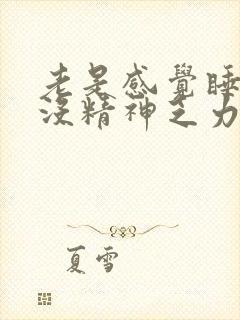 老是感覺睡
沒精神乏力
夏雪